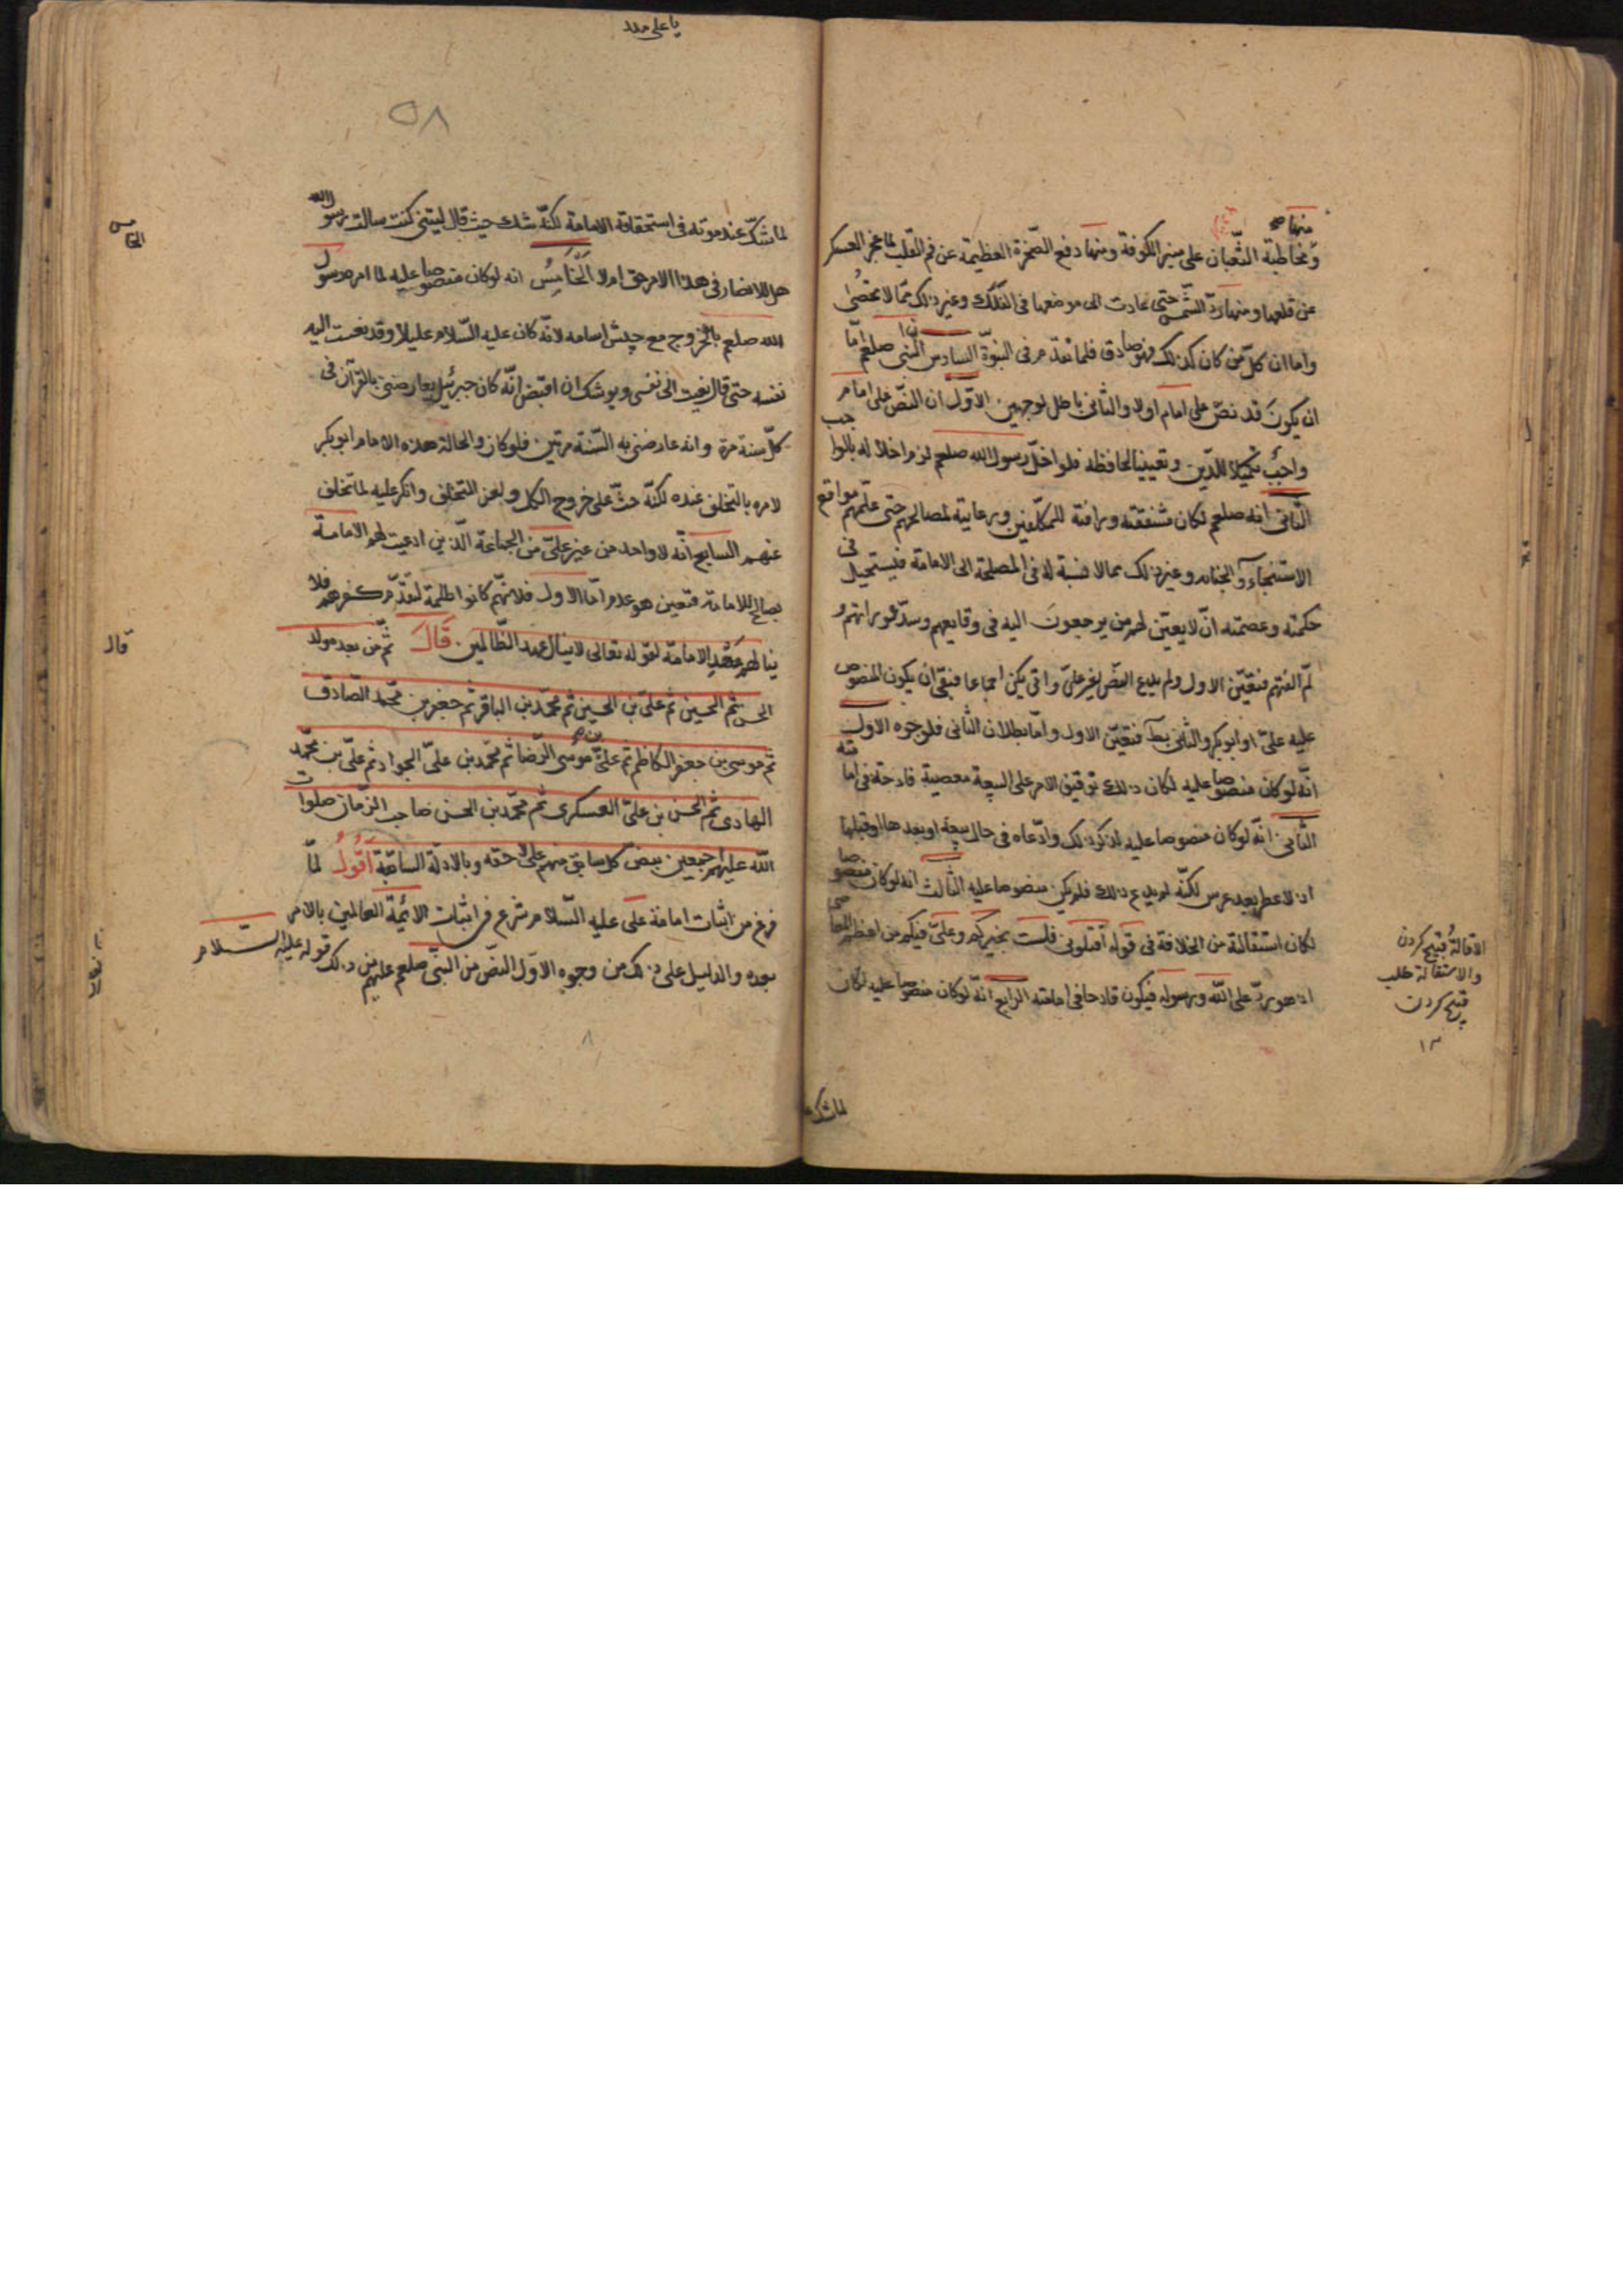 منها
ومخاطبة الثعبان على منبر الكوفة ومنها دفع الصخرة العظيمة عن فم القليب لما عجز العسكر
عن قلعها ومنها ردّ الشمس حتى عادت الى موضعها فى الفلك وغير ذلك ممّا لا تحصى
واما ان كلّ من كان كذلك فهو صادق فلما تقدم فى النبوّة السادس النبى صلعم امّا
ان يكون قد نصّ على امام اولا والثانى باطل لوجهين الاوّل ان النصّ على امام
واجب تكميلا للدّين وتعيينا لحافظه فلو اخلّ رسول الله صلعم لزم اخلاله بالواجب
الثانى انه صلعم لكان شفقته ورافته للمكلّفين ورعايته لمصالحهم حتى علّمهم مواقع
الاستنجاء والجنابه وغير ذلك مما لا نسبة له فى المصلحة الى الامامة فيستحيل فى
حكمته وعصمته ان لا يعيّن لهم من يرجعون اليه فى وقايعهم وسدّ عوراتهم و
لمّ الفتهم فتعيّن الاول ولم يدع النصّ لغير علىّ وابى بكر اجماعا فبقى ان يكون المنصوص
عليه علىّ او ابوبكر والثانى بط فتعيّن الاول وامّا بطلان الثانى فلوجوه الاول
انّه لو كان منصوصا عليه لكان ذلك توقيف الامر على البيعة معصية قادحة فى امامته
الثانى انّه لو كان منصوصا عليه لذكر ذلك وادّعاه فى حال بيعته او بعدها او قبلها
اذ لا عطر بعد عرس لكنّه لم يدع ذلك فلم يكن منصوصا عليه الثالث انه لو كان منصوصا
لكان استقالته من الخلافة فى قوله اقيلونى فلست بخيركم وعلىّ فيكم من اعظم المعاصى
اذ هو ردّ على الله ورسوله فيكون قادحا فى امامته الرابع انّه لو كان منصوصا عليه لكان
الاقالة فتح كردن
والاستقالة طلب
فتح كردن
١٢
لما شك
يا على مدد
٥٨
لما شكّ عند موته فى استحقاقه الامامة لكنّه شك حيث قال ليتنى كنت سالت رسول الله
هل للانصار فى هذا الامر حق ام لا الخامس انه لو كان منصوصا عليه لما امره رسول
الله صلعم بالخروج مع جيش اسامه لانّه كان عليه السّلام عليلا وقد نعيت اليه
نفسه حتى قال نعيت الىّ نفسى ويوشك ان اقبض انّه كان جبرئيل يعارضنى بالقرآن فى
كلّ سنة مرة وانه عارضنى به السّنة مرتين فلو كان والحالة هذه الامام ابوبكر
لامره بالتخلف عنده لكنّه حثّ على خروج الكل ولعن المتخلف وانكر عليه لما تخلف
عنهم السابع انّه لا واحد من غير علىّ من الجماعة الّذين ادعيت لهم الامامة
يصلح للامامة فتعين هو ع م امّا الاول فلانهم كانوا ظلمة لتقدّم كفرهم فلا
ينالهم عهد الامامة لقوله تعالى لا ينال عهد الظّالمين قال ثمّ من بعد مولد
الحسن ثم الحسين ثم علىّ بن الحسين ثم محمّد بن الباقر ثم جعفر بن محمّد الصّادق
ثم موسى بن جعفر الكاظم ثم علىّ بن موسى الرّضا ثم محمّد بن علىّ الجواد ثم علىّ بن محمّد
الهادى ثم الحسن بن علىّ العسكرى ثم محمّد بن الحسن صاحب الزّمان صلوات
الله عليهم اجمعين بنصّ كل سابق منهم على لاحقه وبالادلّة السابقة اقول لمّا
فرغ من اثبات امامة على عليه السّلام شرع فى اثبات الائمّة القائمين بالامر
بعده والدليل على ذلك من وجوه الاوّل النصّ من النبىّ صلعم عليهم من ذلك قوله عليه السّلام
الخامس
قال